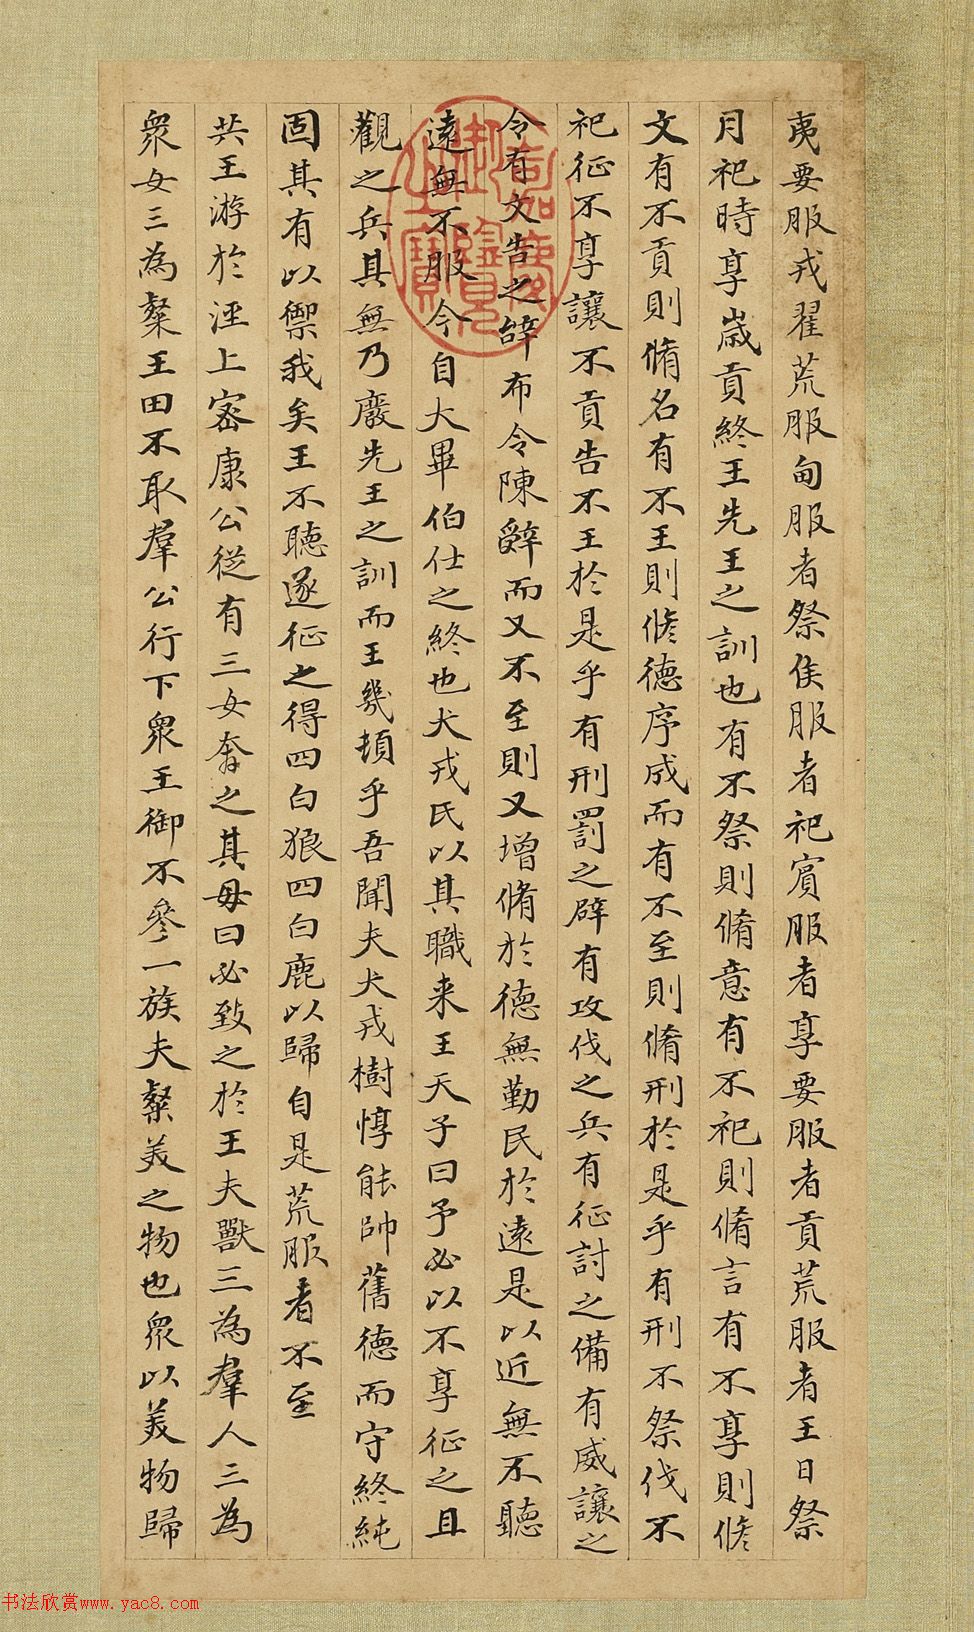 夷要服戎翟荒服甸服者祭侯服者祀賓服者享要服者貢荒服者王日祭
月祀時享歲貢終王先王之訓也有不祭則脩意有不祀則脩言有不享則修
文有不貢則脩名有不王則修德序成而有不至則脩刑於是乎有刑不祭伐不
祀征不享讓不貢告不王於是乎有刑罰之辟有攻伐之兵有征討之備有威讓之
令有文告之辭布令陳辭而又不至則又增脩於德無勤民於遠是以近無不聽
遠無不服今自大畢伯仕之終也犬戎氏以其職来王天子曰予必以不享征之且
觀之兵其無乃廢先王之訓而王幾頓乎吾聞夫犬戎樹惇能帥舊德而守終純
固其有以禦我矣王不聽遂征之得四白狼四白鹿以歸自是荒服者不至
共王游於涇上密康公從有三女奔之其母曰必致之於王夫獸三為羣人三為
衆女三為粲王田不取羣公行下衆王御不參一族夫粲美之物也衆以美物歸
嘉慶
御覽
之寶
书法欣赏www.yac8.com